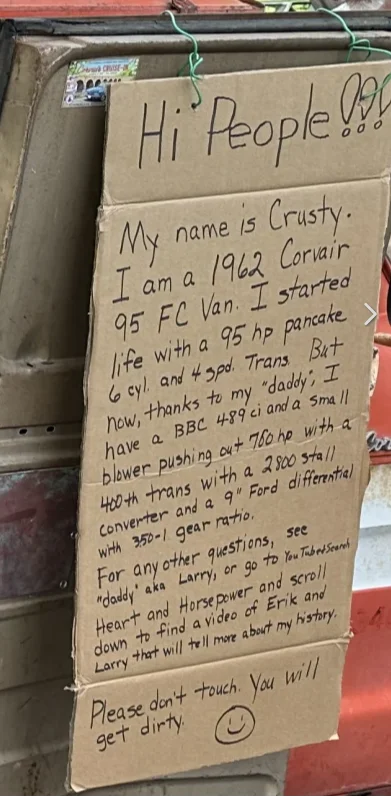 Hi People!!!
My name is Crusty.
I am a 1962 Corvair
95 FC Van. I started
life with a 95 hp pancake
6 cyl. and 4 spd. Trans. But
now, thanks to my "daddy", I
have a BBC 489 ci and a small
blower pushing out 760 hp with a
400th trans with a 2800 stall
converter and a 9" Ford differential
with 350-1 gear ratio.
For any other questions, see
"daddy" aka Larry, or go to YouTube & Search
Heart and Horsepower and scroll
down to find a video of Erik and
Larry that will tell more about my history.
Please don't touch. You will
get dirty.